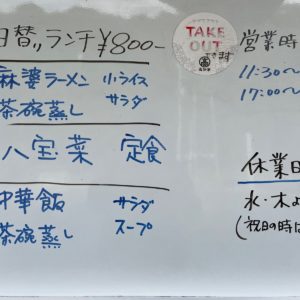 日替〃ランチ ¥800-
麻婆ラーメン 小ライス
茶碗蒸し サラダ
八宝菜 定食
中華飯 サラダ
茶碗蒸し スープ
TAKE
OUT
できます
営業時
11:30〜
17:00〜
休業日
水・木よ
(祝日の時は